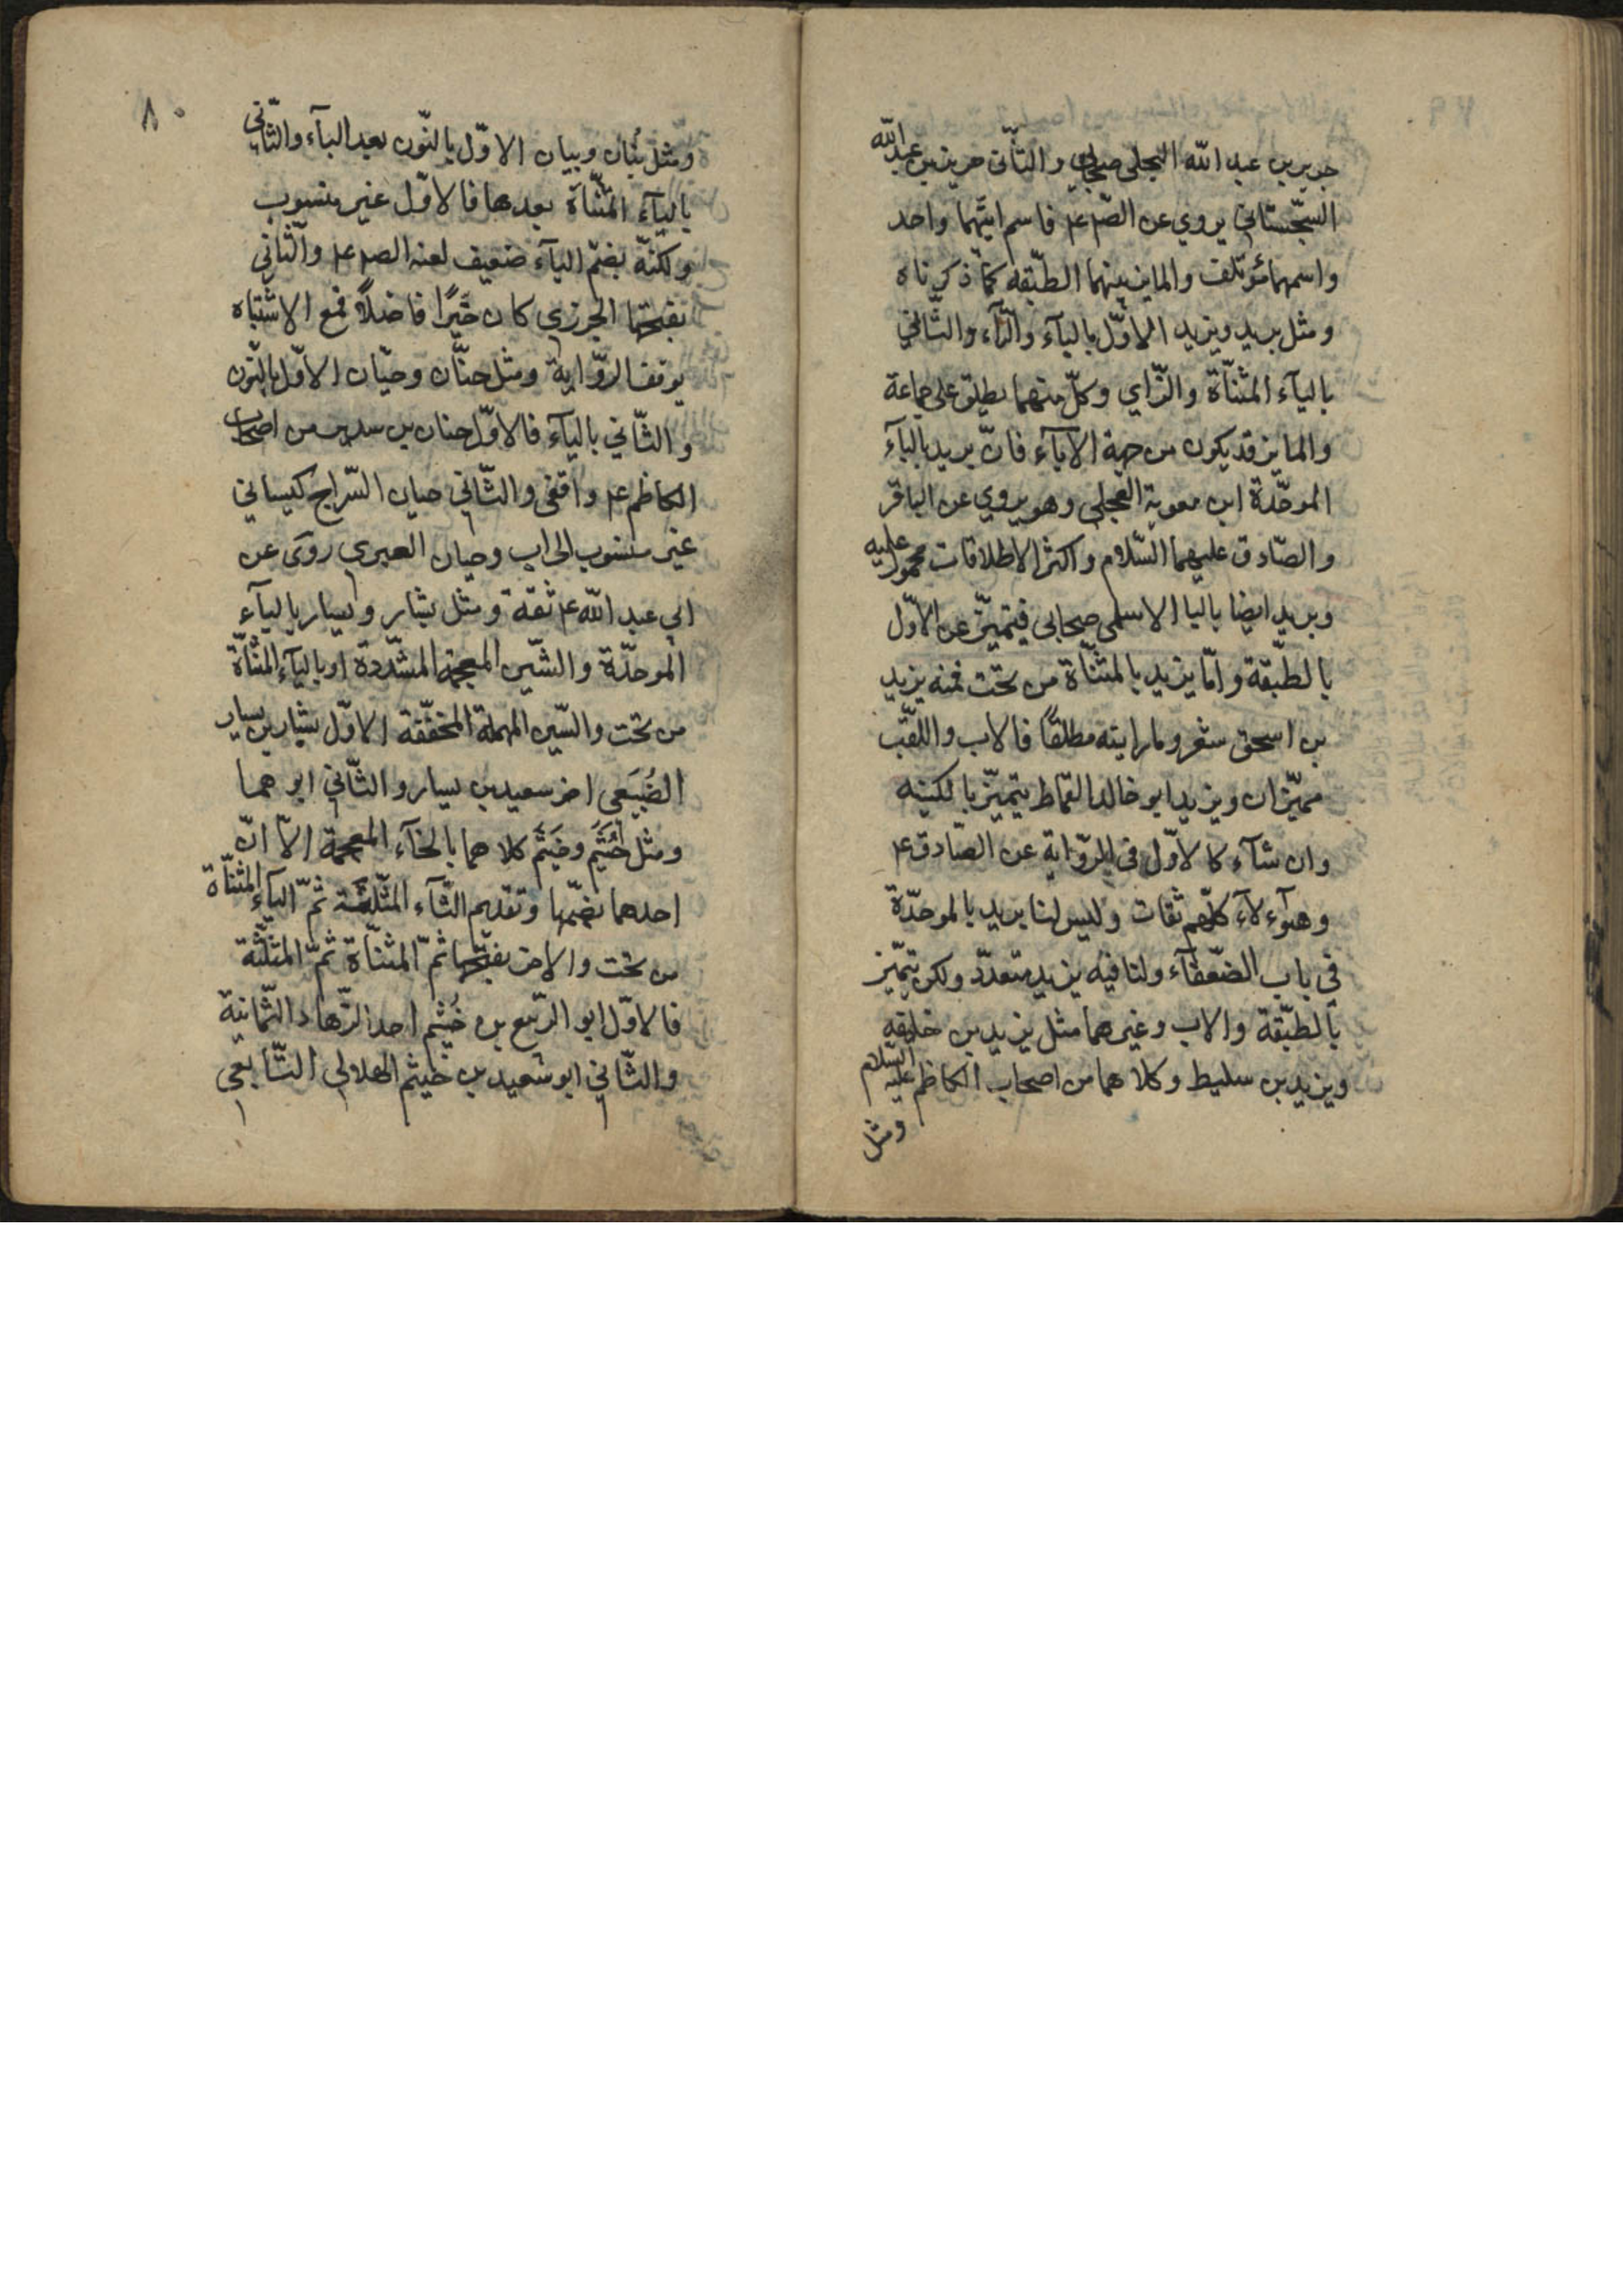 جرير بن عبد الله البجلي صحابي والثاني حريز بن عبد الله
السجستاني يروي عن الصم ع فاسم ابيهما واحد
واسمهما مؤتلف والمايز بينهما الطبقه كما ذكرناه
ومثل بريد ويزيد الاوّل بالبآء والرّآء والثّاني
باليآء المثنّاة والزّاي وكلّ منهما يطلق على جماعة
والمايز قد يكون من جهة الآبآء فانّ بريد بالبآء
الموحّدة ابن معوية العجلي وهو يروي عن الباقر
والصّادق عليهما السّلام واكثر الاطلاقات محمول عليه
وبريد ايضا بالبا الاسلمي صحابي فيتميّز عن الاوّل
بالطّبقة وامّا يزيد بالمثنّاة من تحت فمنه يزيد
بن اسحق شغر وما رايته مطلقًا فالاب واللّقب
مميّزان ويزيد ابو خالد القماط يتميّز بالكنيه
وان شآء كالاوّل في الرّواية عن الصّادق ع
وهؤلآء كلّهم ثقات وليس لنا بريد بالموحّدة
في باب الضّعفآء ولنا فيه يزيد متعدّد ولكن يتميّز
بالطّبقة والاب وغيرهما مثل يزيد بن خليفه
ويزيد بن سليط وكلاهما من اصحاب الكاظم عليه السّلام
ومثل
٨٠
ومثل بنان وبيان الاوّل بالنّون بعد البآء والثّاني
باليآء المثنّاة بعدها فالاوّل غير منسوب
ولكنّه بضمّ البآء ضعيف لعنه الصم ع والثّاني
بفتحها الجزري كان خيّرًا فاضلاً فمع الاشتباه
توقف الرّواية ومثل حنّان وحيّان الاوّل بالنّون
والثّاني باليآء فالاوّل حنان بن سدير من اصحاب
الكاظم ع واقفى والثّاني حيان السّراج كيساني
غير منسوب الى اب وحيان العبري روى عن
ابي عبد الله ع ثقة ومثل بشار ويسار بالبآء
الموحدّة والشّين المعجمة المشدّدة او باليآء المثنّاة
من تحت والسّين المهملة المخفّفة الاوّل بشار بن يسار
الضُبَيَعى اخو سعيد بن يسار والثّاني ابوهما
ومثل خُثَيم وخَيثَم كلاهما بالخآء المعجمة الاّ انّ
احدهما بضمّها وتقديم الثّآء المثّلثة ثمّ اليآء المثنّاة
من تحت والاخر بفتحها ثمّ المثنّاة ثمّ المثلّثة
فالاوّل ابو الرّبيع بن خُثيم احد الزّهاد الثّمانية
والثّاني ابو سعيد بن خيثم الهلالي التّابعي